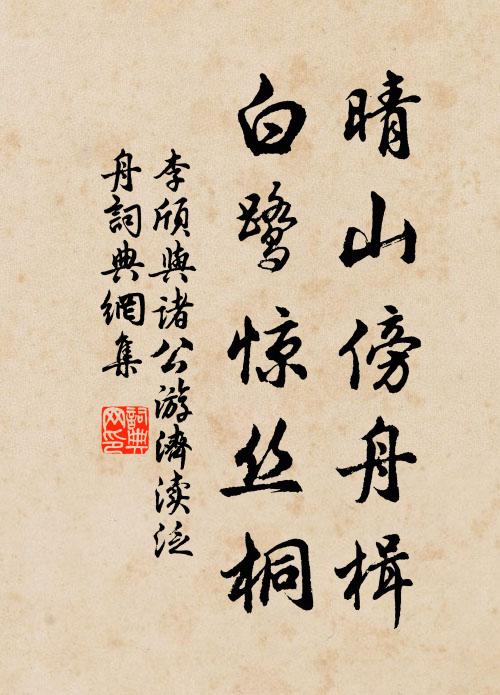 晴山傍舟楫
白鹭惊丝桐
李颀與諸公游濟渎泛
舟詞典網集
詞典网印